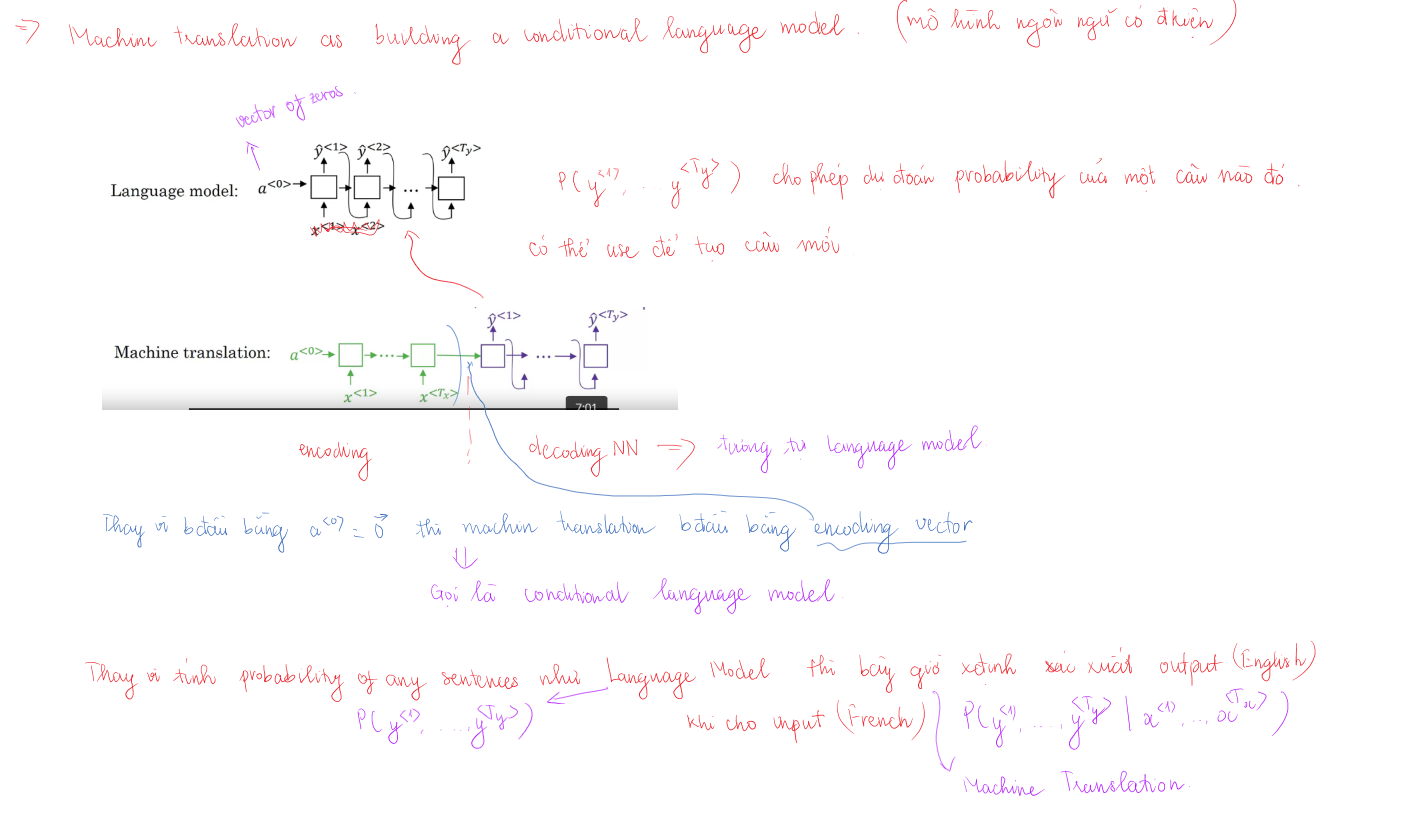 => Machine translation as building a conditional language model. (mô hình ngôn ngữ có đkiện)
vector of zeros.
ŷ<1> ŷ<2> ŷ<Ty>
Language model: a<0> ...
x<1> x<2>
P(y<1>, ... y<Ty>) cho phép dự đoán probability của một câu nào đó.
có thể use để tạo câu mới
ŷ<1> ŷ<Ty>
Machine translation: a<0> ... ...
x<1> x<Tx>
7:01
encoding decoding NN => tương tự language model
Thay vì bđầu bằng a<0> = 0⃗ thì machin translation bđầu bằng encoding vector
Gọi là conditional language model.
Thay vì tính probability of any sentences như Language Model thì bây giờ xđịnh xác xuất output (English)
P(y<1>, ..., y<Ty>) khi cho input (French) P(y<1>, ..., y<Ty> | x<1>, ..., x<Tx>)
Machine Translation.